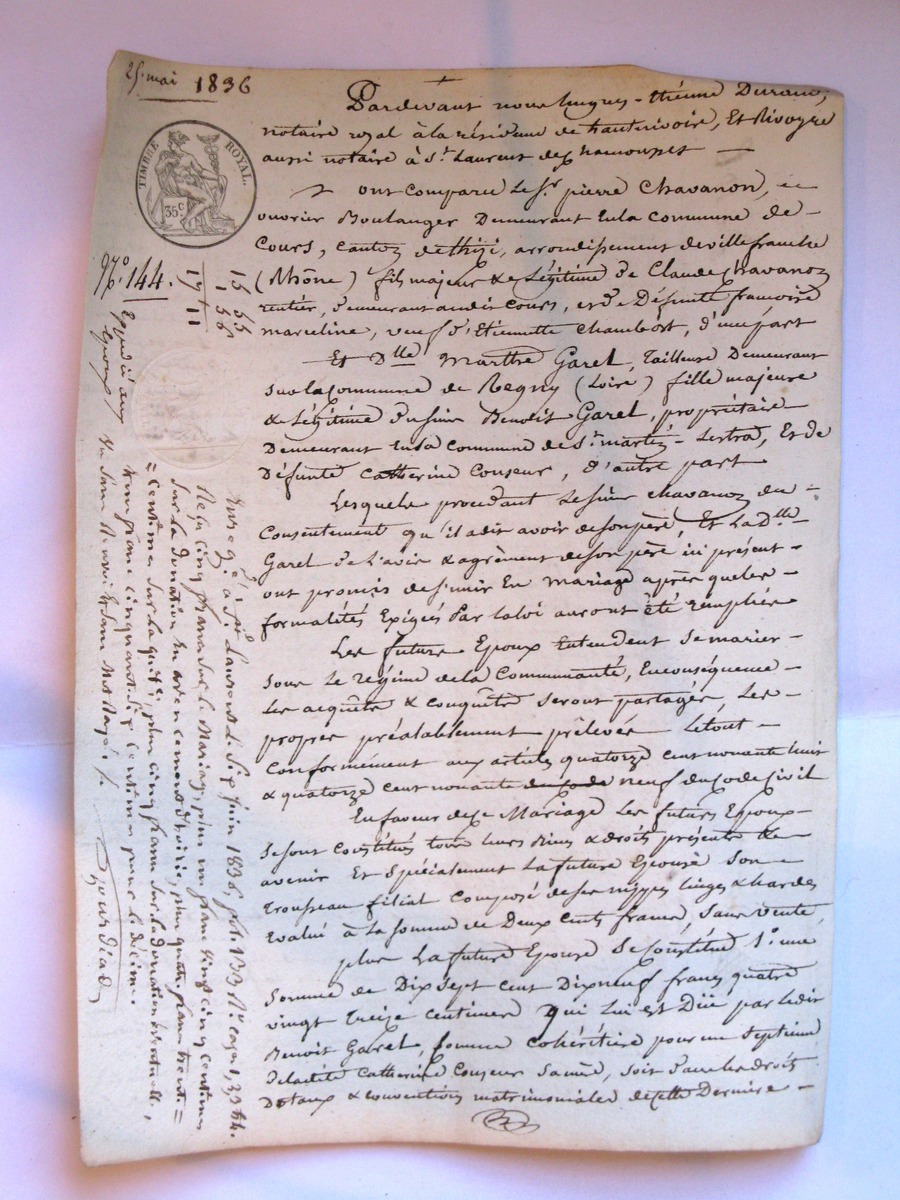 25 mai 1836
TIMBRE ROYAL.
35 c
Nº 144.
15 55
1 56
17 11
Pardevant nous hugues-thienne Durand,
notaire royal à la résidence de hauterivoire, Et Rivoyre
aussi notaire à St Laurent de Chamousset —
ont comparu Le Sr pierre Chavanon,
ouvrier Boulanger Demeurant En la Commune de
Cours, canton de thizi, arrondissement de villefranche
(Rhône) fils majeur & Légitime De Claude Chavanon
rentier, demeurant audit Cours, et de Défunte françoise
marceline, veuf d'Etiennette Chambost, d'une part
Et Dlle Marthe Garel, Tailleuse Demeurant
sur la Commune de Regny (Loire) fille majeure
& Légitime du sieur Benoit Garel, propriétaire
Demeurant En la Commune de St martin-Lestra, Et de
Défunte Catherine Couzeur, d'autre part
Lesquels procédant Le sieur Chavanon du
Consentement qu'il a dit avoir de son père, Et La Dlle
Garel de l'avis & agrément de son père ici présent
ont promis de s'unir En mariage après que les
formalités Exigées Par la loi auront été remplies
Les futurs Epoux Entendent se marier
sous Le régime de la Communauté, En conséquence
Les acquêts & conquêts seront partagés, Les
propres préalablement prélevés Le tout
Conformément aux articles quatorze cent nonante huit
& quatorze cent nonante du code neuf du Code Civil
En faveur de ce Mariage Les futurs Epoux
se sont Constitués tous leurs Biens & droits présents &
avenir Et Spécialement La future Epouse son
Trousseau filial Composé de ses nippes linges & hardes
Evalué à La somme de Deux cents francs, sans vente
plus La future Epouse se Constitue 1º une
Somme de Dix Sept Cent Dix neuf francs quatre
vingt Treize centimes qui Lui est Dûe par Ledit
Benoit Garel, comme cohéritière pour un septième
de ladite Catherine Couzeur sa mère, soit dans les droits
Dotaux & conventions matrimoniales de cette Dernière
Enregé à St Laurent le six juin 1836, fol. 133 Rº cases 1, 2, 3 & 4.
Reçu cinq francs sur le Mariage, plus un franc vingt cinq centimes
sur la Donation en avancement d'hoirie, plus quatre francs trente
centimes sur la quitté, plus cinq francs sur la donation éventuelle,
un franc cinquante six centimes pour le décime